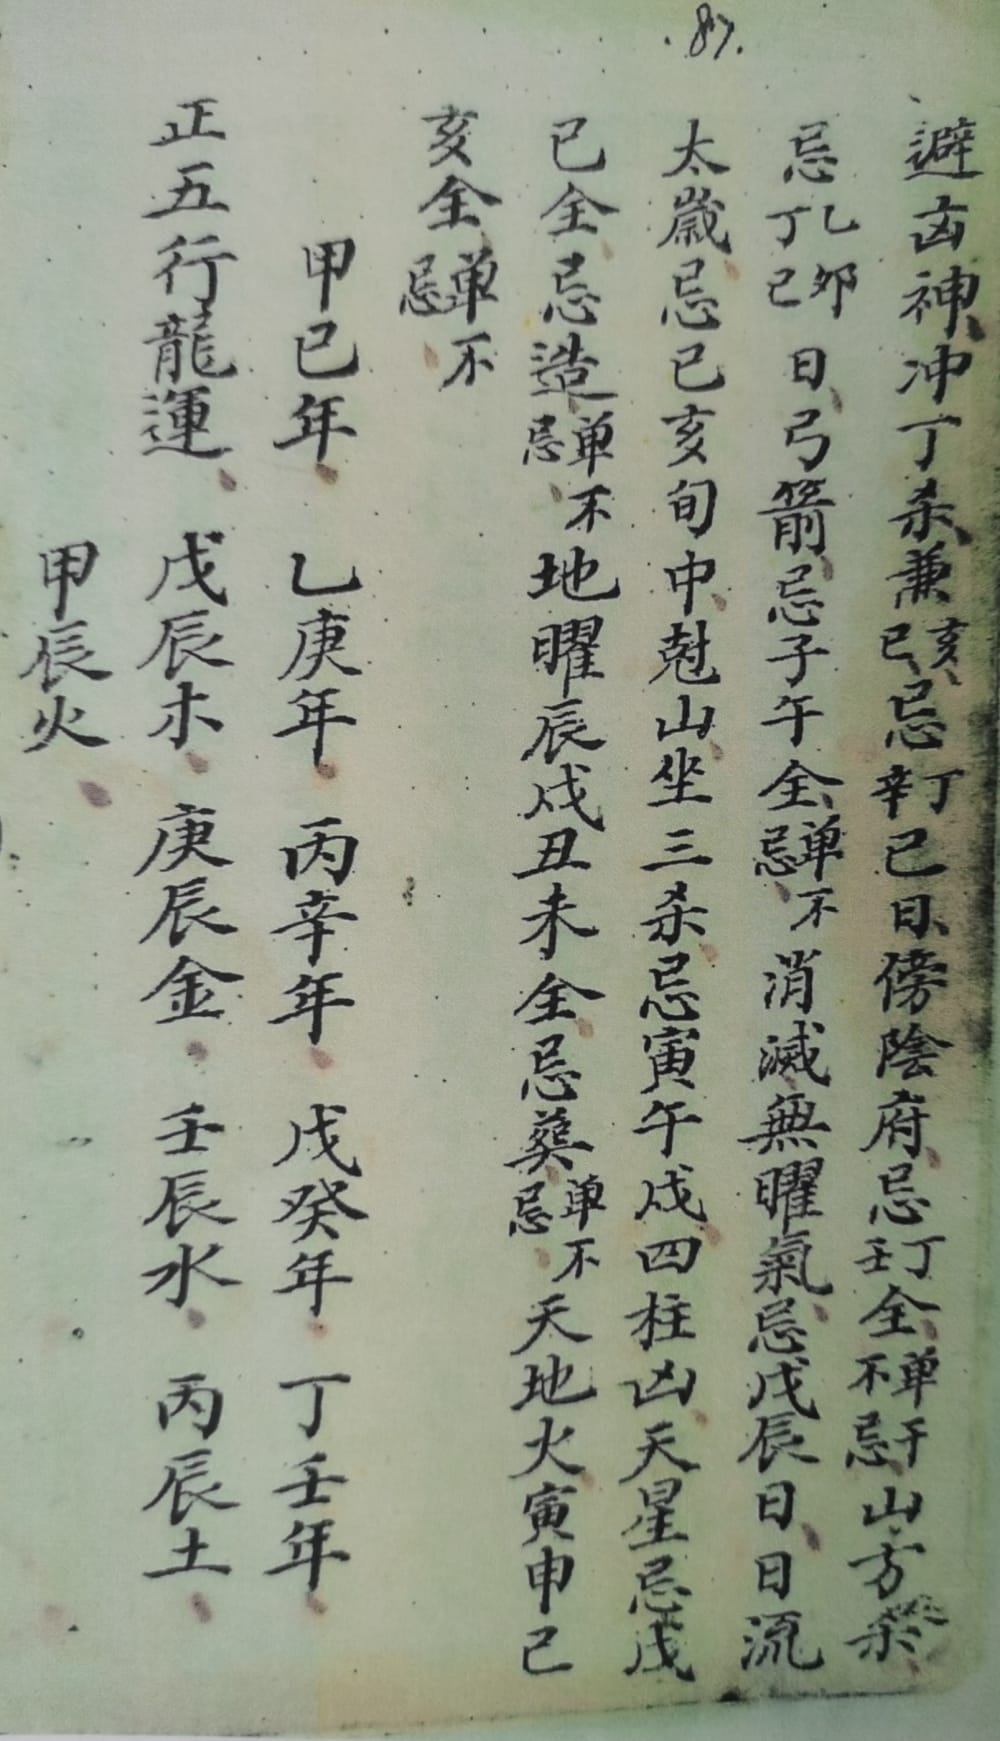 .87.
避凶神冲丁杀兼亥巳忌丁辛巳日傍陰府忌丁壬全单干不忌山方杀
忌乙卯丁巳日弓箭忌子午全单不忌消滅無曜氣忌戊辰日日流
太歲忌巳亥旬中尅山坐三杀忌寅午戌四柱凶天星忌戊
巳全忌造单不忌地曜辰戌丑未全忌葬单不忌天地火寅申巳
亥全单不忌
甲巳年 乙庚年 丙辛年 戊癸年 丁壬年
正五行龍運 戊辰木 庚辰金 壬辰水 丙辰土
甲辰火